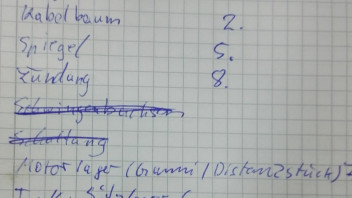 Kabelbaum 2.
Spiegel 5.
Zündung 8.
Schwingenbuchsen
Schaltung
Motorlager (Gummi/Distanzstück)